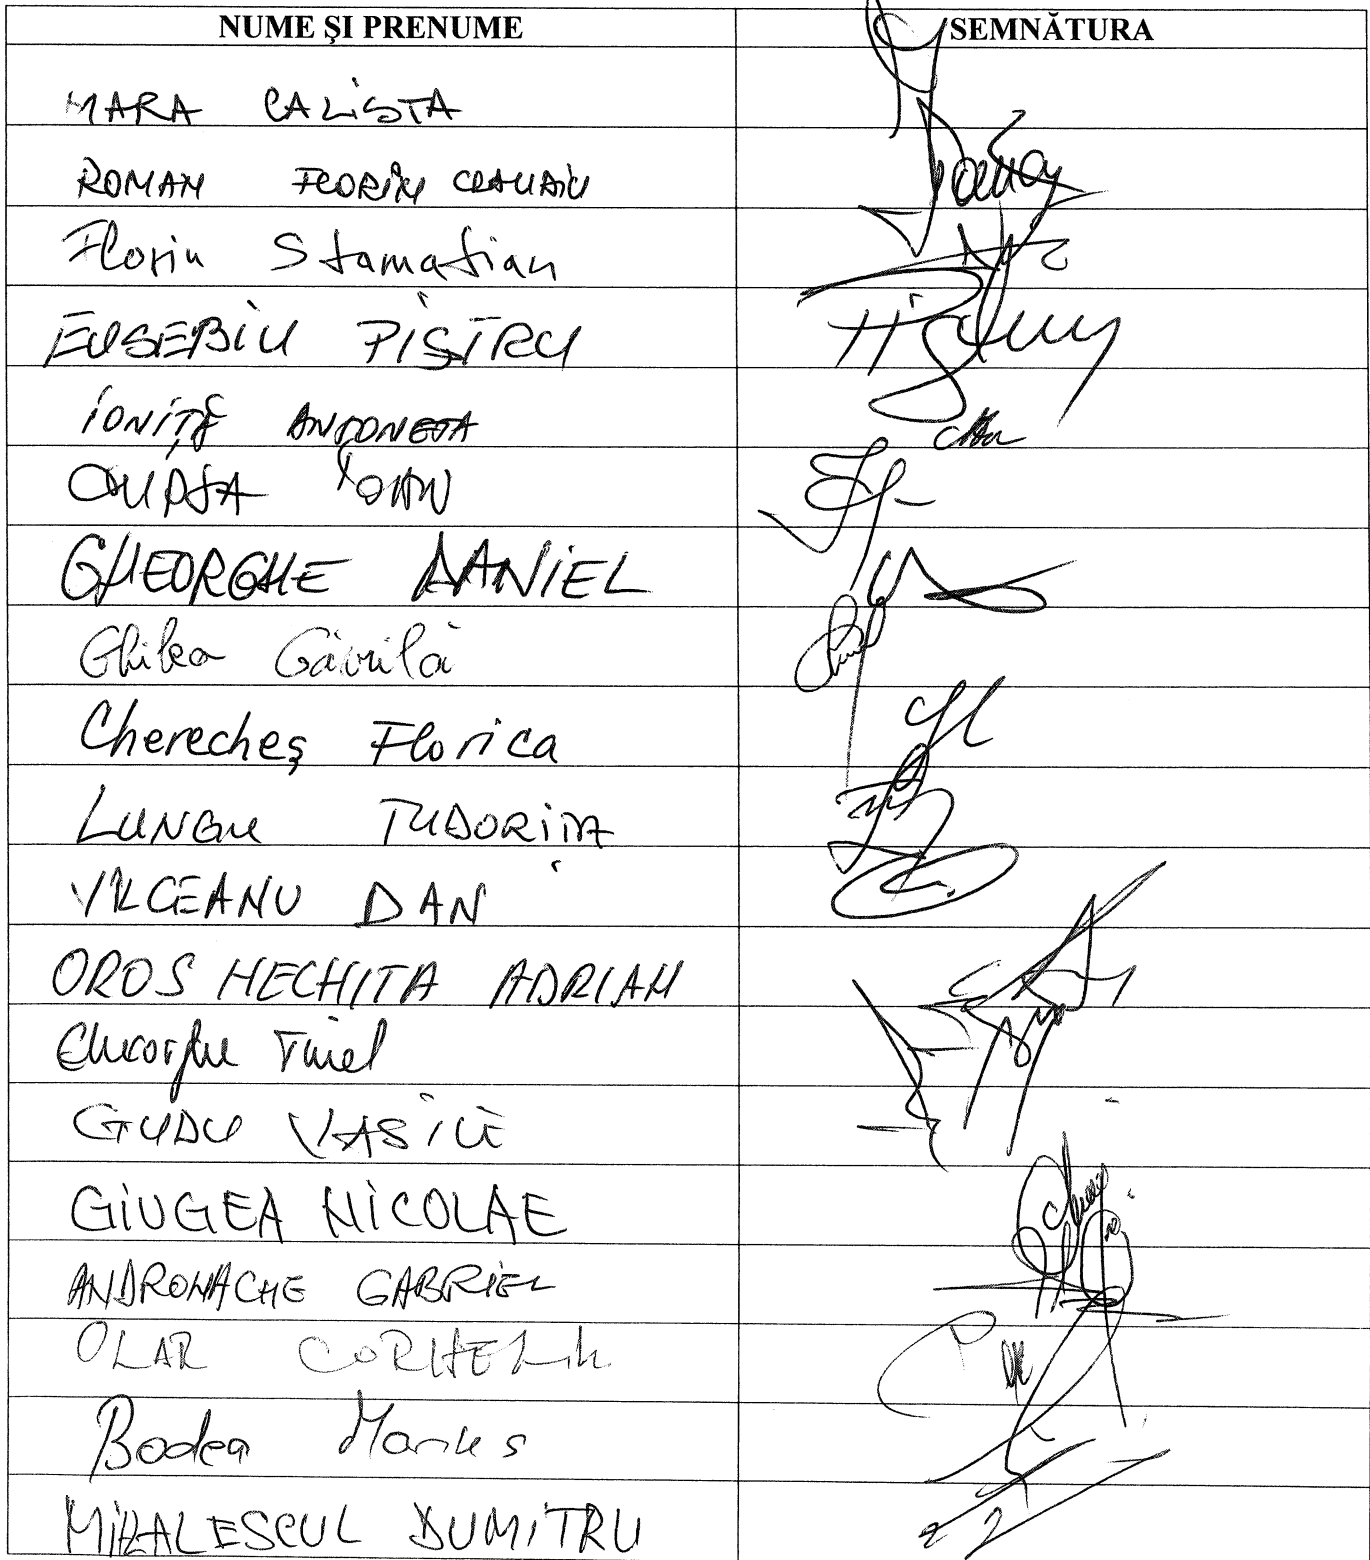 NUME ŞI PRENUME SEMNĂTURA
MARA CALISTA
ROMAN FLORIN CLAUDIU
Florin Stamatian
EUSEBIU PISTRU
IONIȚĂ ANTONETA
CUPȘA IOAN
GHEORGHE DANIEL
Ghilea Găvrilă
Cherecheş Florica
LUNGU TUDORIȚA
VÎLCEANU DAN
OROS NECHITA ADRIAN
Gheorghe Tinel
GUDU VASILE
GIUGEA NICOLAE
ANDRONACHE GABRIEL
OLAR CORNELIU
Bodea Marius
MIHALESCUL DUMITRU